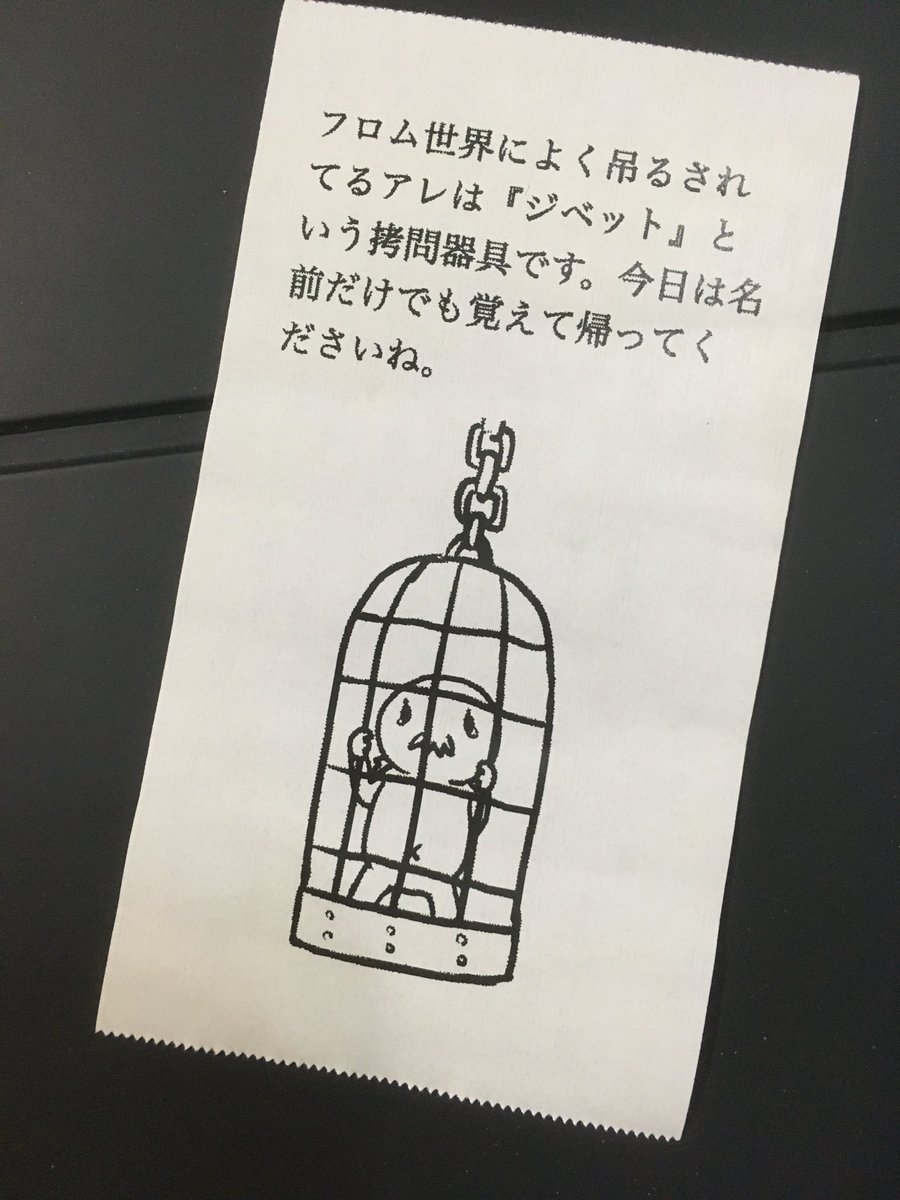 フロム世界によく吊るされ
てるアレは『ジベット』と
いう拷問器具です。今日は名
前だけでも覚えて帰ってく
ださいね。